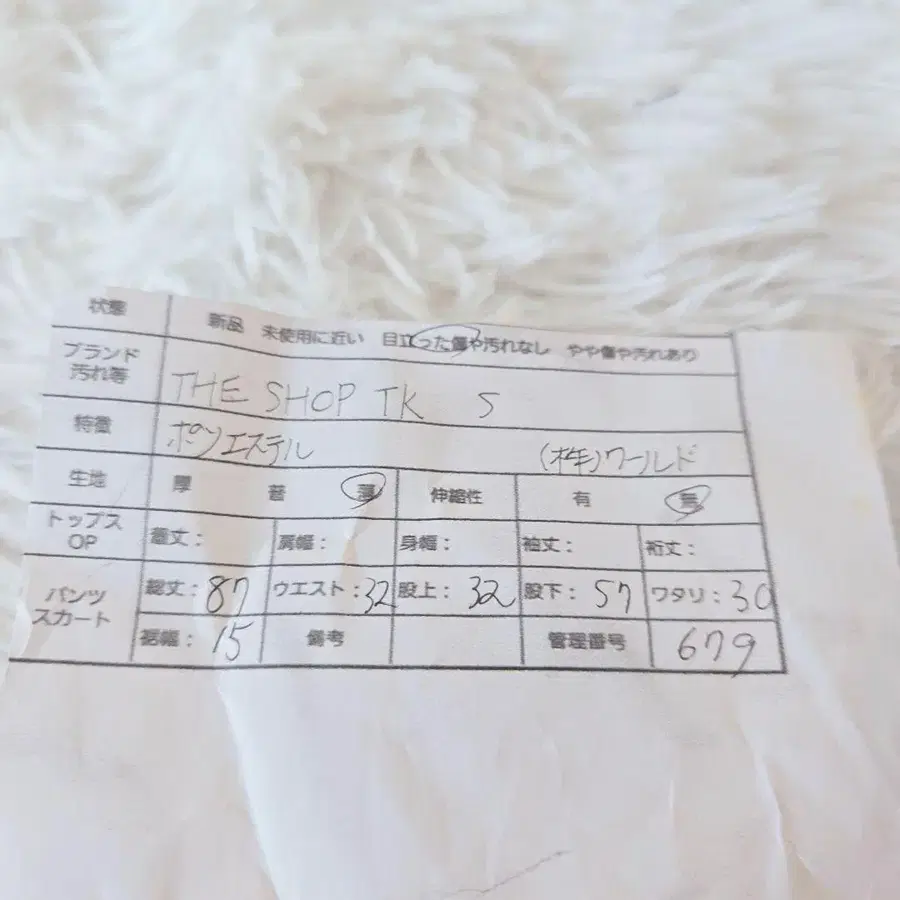 状態 新品 未使用に近い 目立った傷や汚れなし やや傷や汚れあり
ブランド
汚れ等
THE SHOP TK S
特徴 ポリエステル (株)ワールド
生地 厚 普 薄 伸縮性 有 無
トップス
OP
着丈: 肩幅: 身幅: 袖丈: 裄丈:
パンツ
スカート
総丈: 87 ウエスト: 32 股上: 32 股下: 57 ワタリ: 30
裾幅: 15 備考 管理番号 679